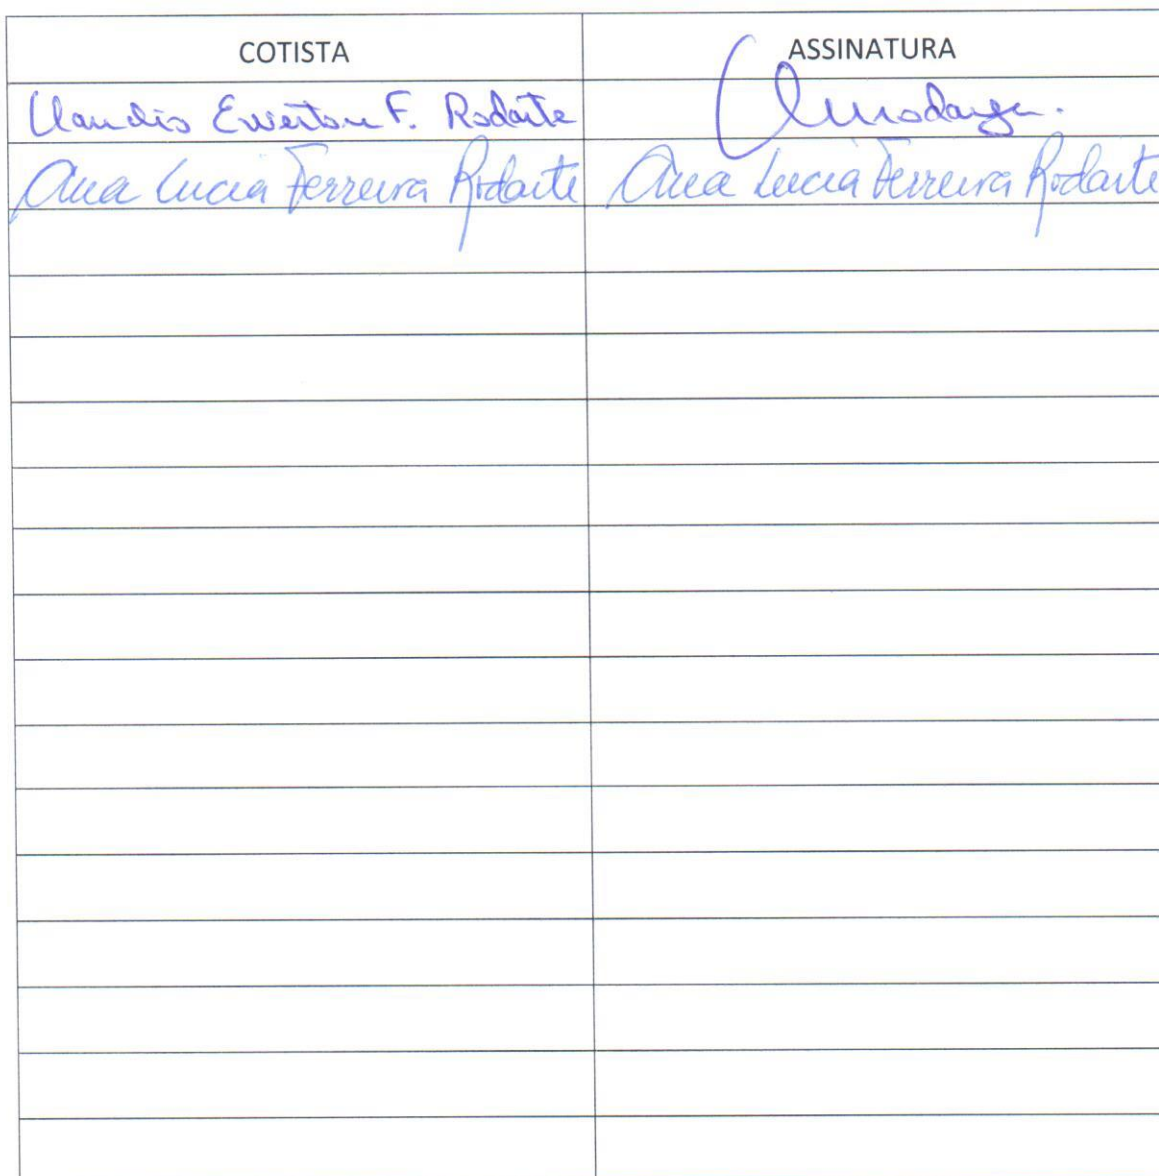 COTISTA ASSINATURA
Claudio Ewerton F. Rodarte
Ana Lucia Ferreira Rodarte Ana Lucia Ferreira Rodarte